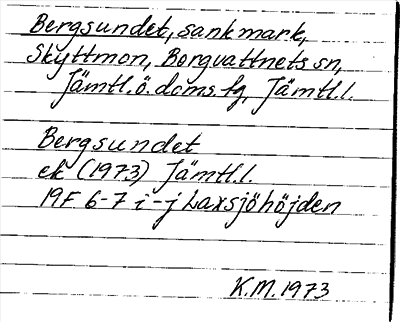 Bergsundet, sankmark,
Skyttmon, Borgvattnets sn,
Jämtl.ö.doms.fg, Jämtl.l.
Bergsundet
ek (1973) Jämtl.l.
19F 6-7 i-j Laxsjöhöjden
K.M. 1973